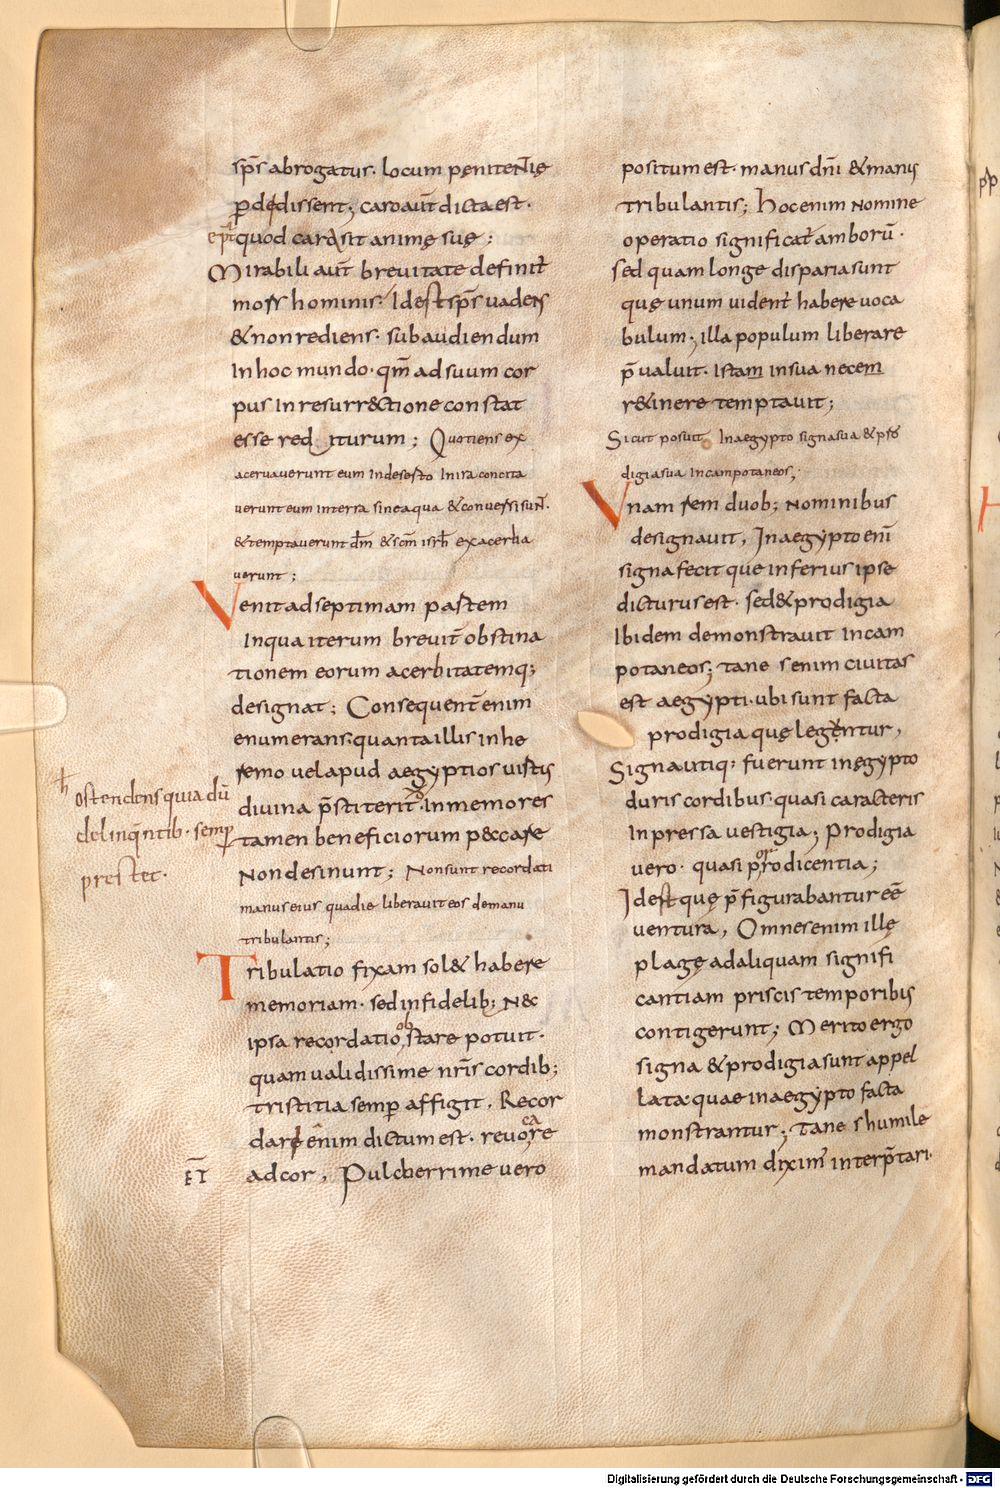 sp̄s abrogatus. locum penitentię
ꝑdedissent; caro aut̄ dicta est.
quod caro sit animę suę;
Mirabili aut̄ breuitate definit
mors hominis. Idest sp̄s uadens
& non rediens. subaudiendum
In hoc mundo. qm̄ ad suum cor
pus in resurr&ctione constat
esse rediturum; Quotiens ex
acerbauerunt eum In deserto In ira concita
uerunt eum in terra sine aqua & conuersi sunt.
& temptauerunt dm̄ & scm̄ isrł exacerba
uerunt;
Venit ad septimam partem
In qua iterum breuit̄ obstina
tionem eorum acerbitatemq;
designat; Consequent̄ enim
enumerans quanta illis in he
remo uel apud aegyptios uistis
diuina p̄stiterit. Inmemores
tamen beneficiorum peccare
Non desinunt; Non sunt recordati
manus eius qua die liberauit eos de manu
tribulantis;
Tribulatio fixam sol& habere
memoriam. sed infidelib; nec
ipsa recordatio obstare potuit.
quam ualidissime nr̄is cordib;
tristitia semꝑ affigit. Recor
dare enim dictum est. reuocare
ad cor, Pulcherrime uero
ħ ostendens quia dū
delinq̄ntib. semꝑ
prestet.
ET
positum est. manus dn̄i & manus
tribulantis; hoc enim nomine
operatio significat̄ amborū.
sed quam longe disparia sunt
quę unum uident̄ habere uoca
bulum. illa populum liberare
p̄ualuit. Istam in sua necem
r&inere temptauit;
Sicut posuit In aegypto signa sua & pro
digia sua in campo taneos;
Vnam rem duob; nominibus
designauit, In aegypto eni
signa fecit que inferius ipse
dicturus est. sed & prodigia
Ibidem demonstrauit in cam
po taneos; tane s enim ciuitas
est aegypti. ubi sunt facta
prodigia quę legentur,
Signa utiq; fuerunt in ęgypto
duris cordibus quasi caracteris
Inpressa uestigia; Prodigia
uero. quasi porrodicentia;
Idest quę p̄figurabantur eē
uentura, Omnes enim illę
plagę ad aliquam signifi
cantiam priscis temporibus
contigerunt; Merito ergo
signa & prodigia sunt appel
lata. quae in aegypto facta
monstrantur; tane s humile
mandatum diximus interp̄tari.
Digitalisierung gefördert durch die Deutsche Forschungsgemeinschaft - DFG